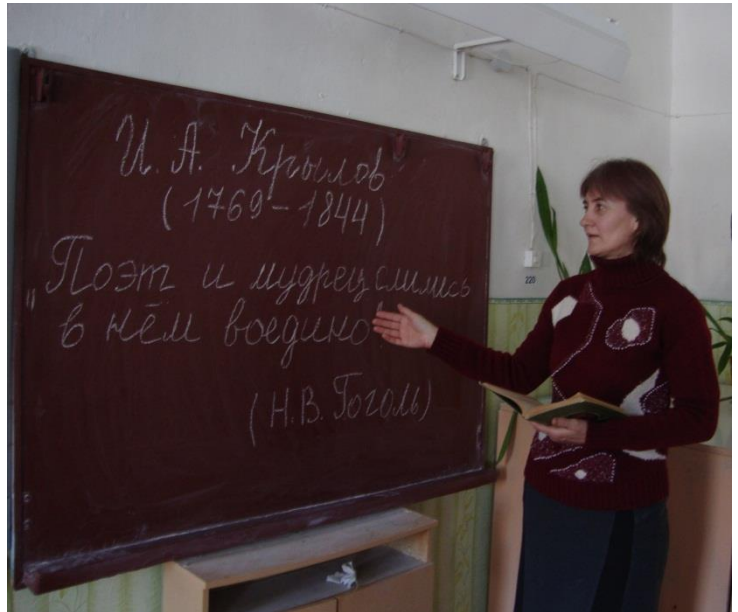 И. А. Крылов
(1769-1844)
„Поэт и мудрец слились
в нём воедино"
(Н.В. Гоголь)
220